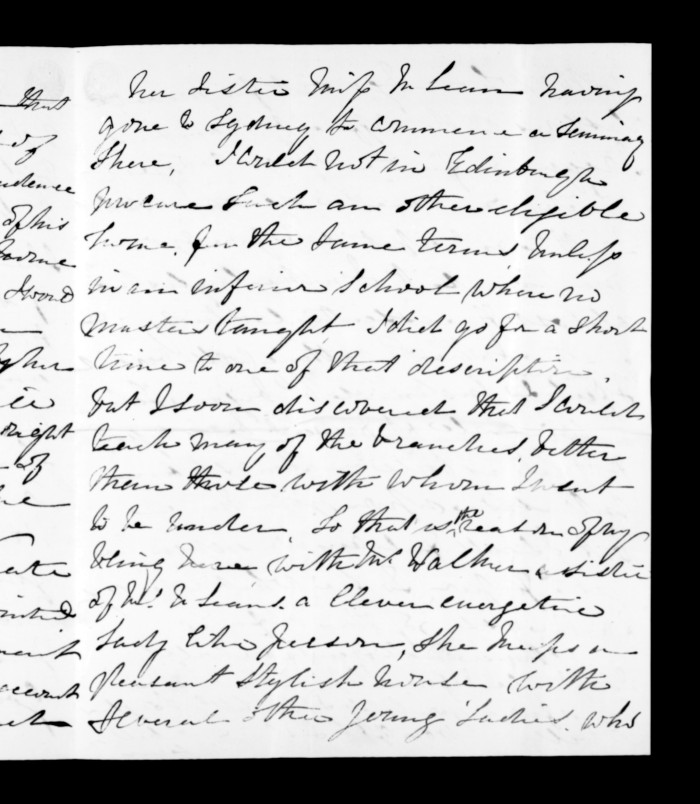 her sister Miss McLean having
gone to Sydney to commence a seminary
there, I could not in Edinburgh
procure such an other eligible
home, for the same terms, unless
in an inferior school where no
masters taught I did go for a short
time to one of that description,
but I soon discovered that I could
teach many of the branches, better
than those with whom I went
to be under, so that is the reason of my
being here with Mrs Walker a sister
of Mrs McLeans. a clever energetic
lady like person, she keeps a
pleasant stylish house with
several other young Ladies. who
that
of
of his
I would
ought
of
account